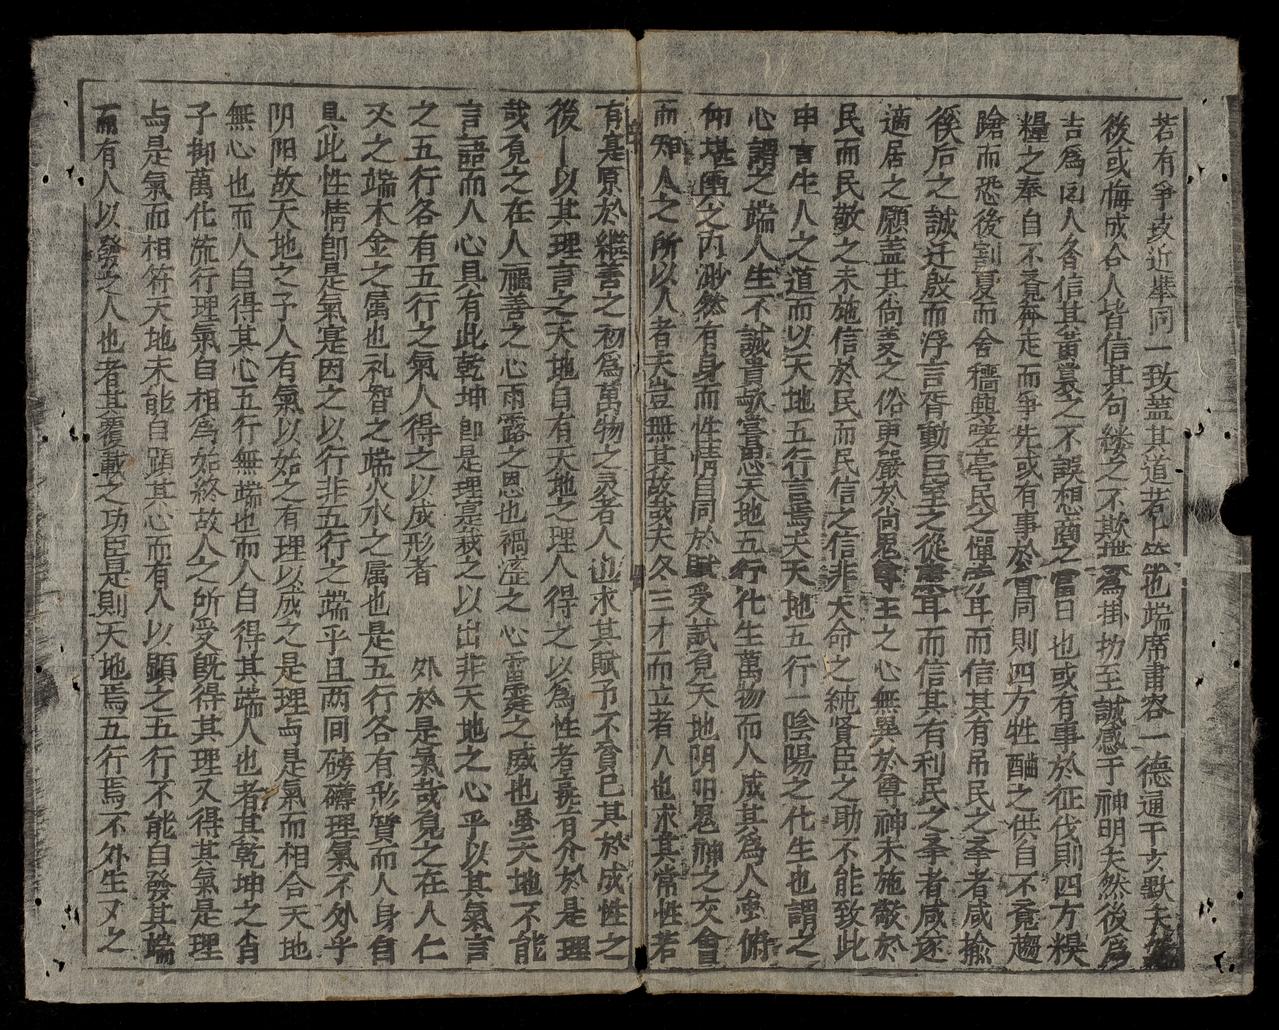 若有爭故近舉同一致蓋其道若卜筮也端席肅容一德通于玄默夫然
後或悔成合人皆信其句繇之不欺揲爲掛扐至誠感于神明夫然後爲
吉爲凶人各信其黃裳之不誤想商之當日也或有事於征伐則四方糗
糧之奉自不覺奔走而爭先或有事於會同則四方牲醴之供自不覺趨
蹌而恐後割夏而舍穡興嗟亳民之憚勞耳而信其有吊民之孚者咸揄
徯后之誠迁殷而浮言胥動巨室之從惠耳而信其有利民之孚者咸逐
適居之願蓋其尚羑之俗更嚴於尚鬼尊王之心無異於尊神未施敬於
民而民敬之未施信於民而民信之信非天命之純賢臣之助不能致此
申言生人之道而以天地五行言焉夫天地五行一陰陽之化生也謂之
心謂之端人生不誠貴歟嘗思天地五行化生萬物而人成其爲人虽俯
仰堪輿之內渺然有身而性情自同於賦受試覓天地阴阳鬼神之交會
而知人之所以人者夫豈無其故哉夫參三才而立者人也求其常性若
有是原於繼善之初爲萬物之灵者人也求其賦予不貧已其於成性之
後一以其理言之天地自有天地之理人得之以爲性者莫有分於是理
哉覓之在人福善之心雨露之恩也禍淫之心雷霆之威也虽天地不能
言語而人心具有此乾坤卽是理寔我之以出非天地之心乎以其氣言
之五行各有五行之氣人得之以成形者 外於是氣哉覓之在人仁
义之端木金之属也礼智之端火水之属也是五行各有形質而人身自
具此性情卽是氣寔因之以行非五行之端乎且两间磅礴理氣不外乎
阴阳故天地之子人有氣以始之有理以成之是理与是氣而相合天地
無心也而人自得其心五行無端也而人自得其端人也者其乾坤之肖
子抑萬化流行理氣自相爲始終故人之所受既得其理又得其氣是理
与是氣而相符天地未能自顕其心而有人以顕之五行不能自發其端
而有人以發之人也者其覆載之功臣是則天地焉五行焉不外生人之